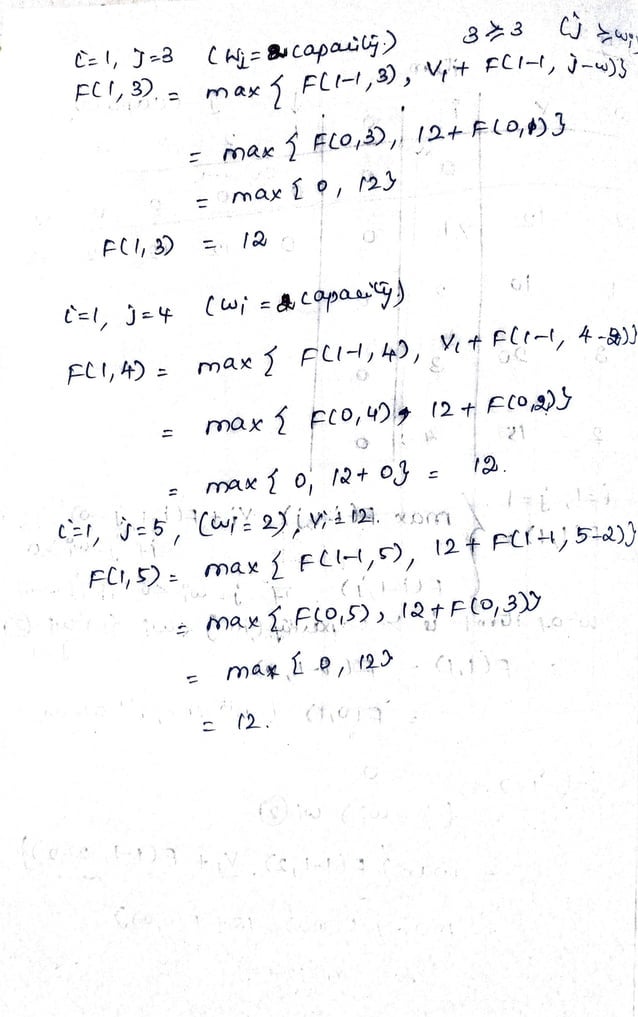 i=1, j=3 (wi = 2 capacity.) 3≥3 (j ≥wi)
F(1,3) = max { F(1-1,3), V1+ F(1-1, j-w)}
= max { F(0,3), 12+F(0,1)}
= max { 0, 12}
F(1,3) = 12
i=1, j=4 (wi = 2 capacity)
F(1,4) = max { F(1-1,4), V1+F(1-1, 4-2)}
= max { F(0,4), 12+ F(0,2)}
= max { 0, 12+0} = 12.
i=1, j=5, (wi=2), Vi=12.
F(1,5) = max { F(1-1,5), 12+F(1-1, 5-2)}
= max { F(0,5), 12+F(0,3)}
= max { 0, 12}
= 12.